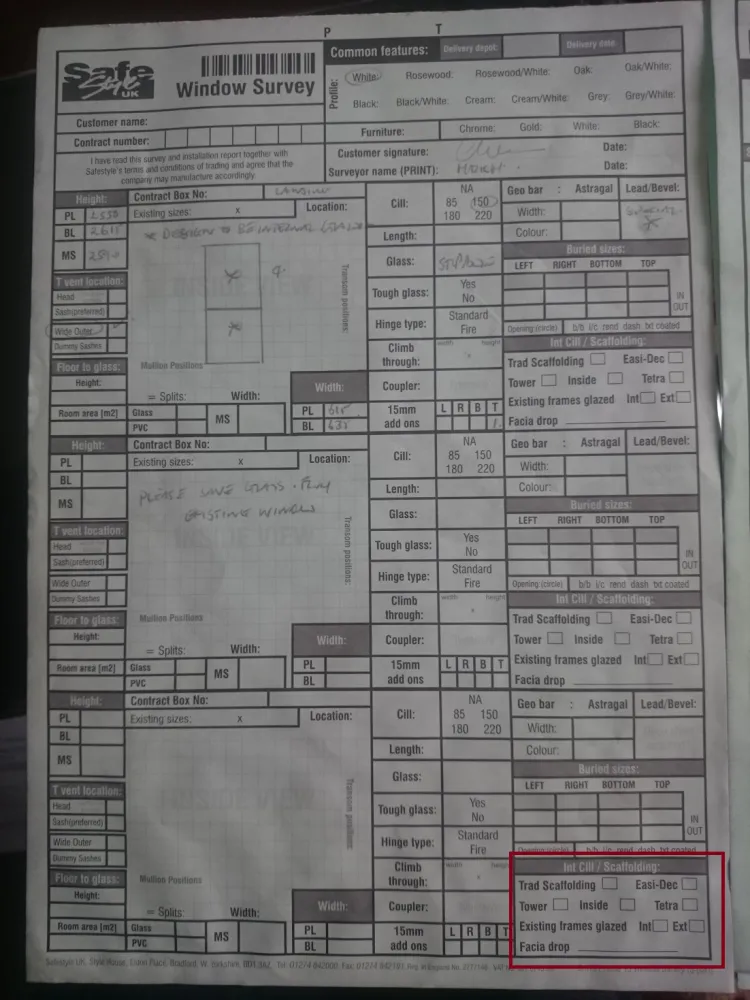 P T
Safe Style UK
Window Survey
Common features: Delivery depot: Delivery date:
Profile: White: Rosewood: Rosewood/White: Oak: Oak/White:
Black: Black/White: Cream: Cream/White: Grey: Grey/White:
Customer name:
Contract number:
Furniture: Chrome: Gold: White: Black:
I have read this survey and installation report together with
Safestyle's terms and conditions of trading and agree that the
company may manufacture accordingly.
Customer signature: Date:
Surveyor name (PRINT): Date:
Height: Contract Box No:
Existing sizes: x Location:
PL
BL 2615
MS
* DESIGN TO BE INTERNAL
T vent location:
Head
Sash(preferred)
Wide Outer
Dummy Sashes
Floor to glass:
Height:
Transom positions:
Mullion Positions
= Splits: Width:
Room area [m2] Glass
PVC
MS
Width:
PL 615
BL 635
Cill: NA
85 150
180 220
Length:
Glass:
Tough glass: Yes
No
Hinge type: Standard
Fire
Climb through: width x height
Coupler:
15mm add ons L R B T
Geo bar : Astragal Lead/Bevel:
Width:
Colour:
Buried sizes:
LEFT RIGHT BOTTOM TOP
IN
OUT
Opening (circle) b/b i/c rend dash txt coated
Int Cill / Scaffolding:
Trad Scaffolding Easi-Dec
Tower Inside Tetra
Existing frames glazed Int Ext
Facia drop
Height: Contract Box No:
Existing sizes: x Location:
PL
BL
MS
PLEASE SAVE GLASS FROM
EXISTING WINDOW
T vent location:
Head
Sash(preferred)
Wide Outer
Dummy Sashes
Floor to glass:
Height:
Transom positions:
Mullion Positions
= Splits: Width:
Room area [m2] Glass
PVC
MS
Width:
PL
BL
Cill: NA
85 150
180 220
Length:
Glass:
Tough glass: Yes
No
Hinge type: Standard
Fire
Climb through: width x height
Coupler:
15mm add ons L R B T
Geo bar : Astragal Lead/Bevel:
Width:
Colour:
Buried sizes:
LEFT RIGHT BOTTOM TOP
IN
OUT
Opening (circle) b/b i/c rend dash txt coated
Int Cill / Scaffolding:
Trad Scaffolding Easi-Dec
Tower Inside Tetra
Existing frames glazed Int Ext
Facia drop
Height: Contract Box No:
Existing sizes: x Location:
PL
BL
MS
T vent location:
Head
Sash(preferred)
Wide Outer
Dummy Sashes
Floor to glass:
Height:
Transom positions:
Mullion Positions
= Splits: Width:
Room area [m2] Glass
PVC
MS
Width:
PL
BL
Cill: NA
85 150
180 220
Length:
Glass:
Tough glass: Yes
No
Hinge type: Standard
Fire
Climb through: width x height
Coupler:
15mm add ons L R B T
Geo bar : Astragal Lead/Bevel:
Width:
Colour:
Buried sizes:
LEFT RIGHT BOTTOM TOP
IN
OUT
Opening (circle) b/b i/c rend dash txt coated
Int Cill / Scaffolding:
Trad Scaffolding Easi-Dec
Tower Inside Tetra
Existing frames glazed Int Ext
Facia drop
Safestyle UK, Style House, Eldon Place, Bradford, W. Yorkshire, BD1 3AZ Tel: 01274 842000